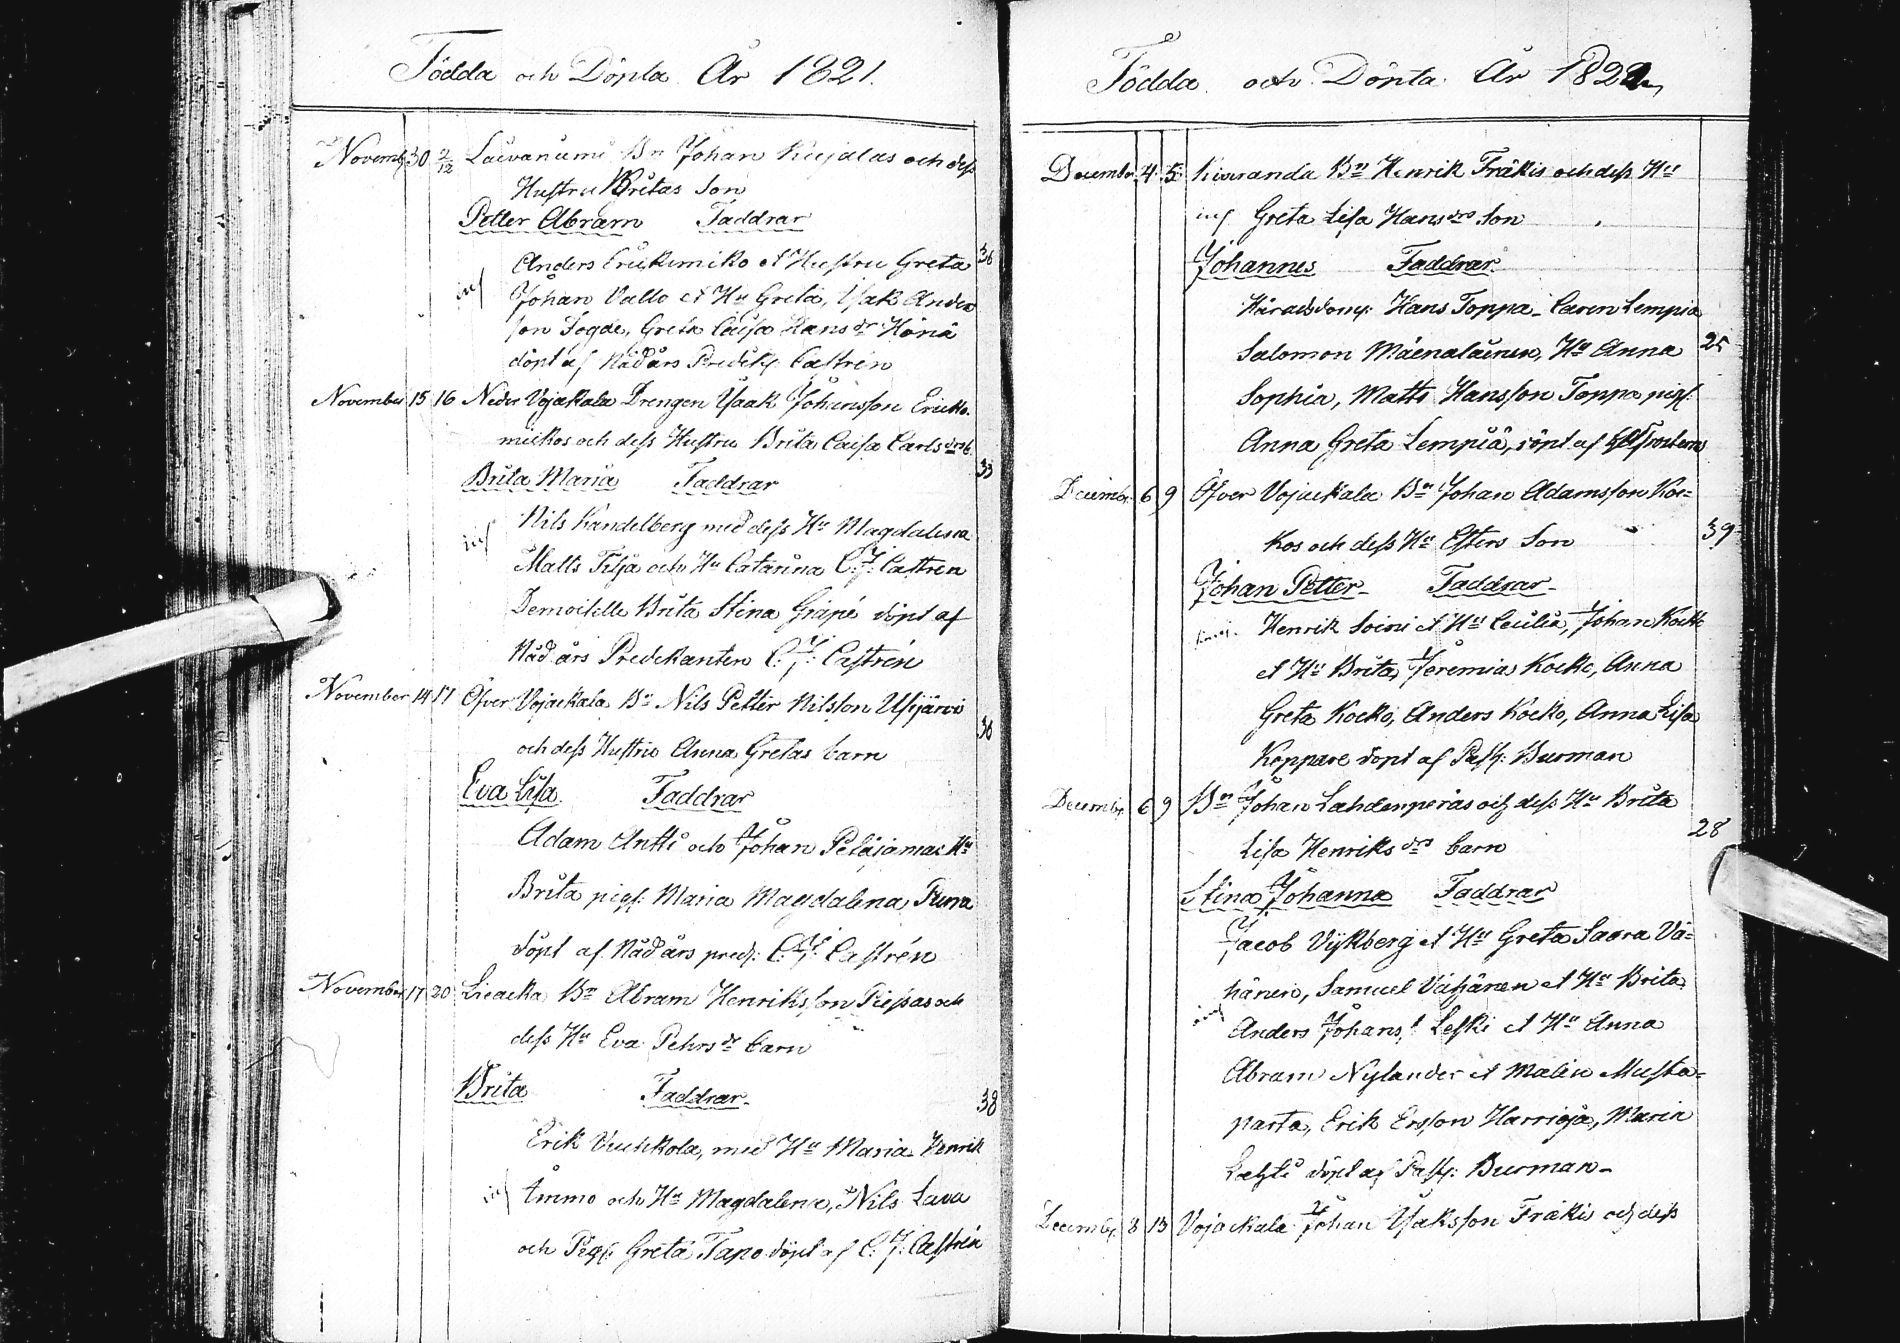 Födda och Döpta År 1821.
Novemb. 30 2/12 Laivaniemi Bn Johan Kujalas och dess
Hustru Britas Son
Petter Abram Faddrar
Anders Erickimiko et Hustru Greta 36
inf Johan Vallo et Hu Greta, Isak Anders
son Fogde, Greta Caisa Hans dr
döpt af Nådårs Predik. Castrén
November 15 16 Neder Vojakala Drengen Isaak Johansson Ericki
mikos och dess Hustru Brita Caisa Carls drs b.
Brita Maria Faddrar 33
inf Nils Kandelberg med dess Hu Magdalena
Matts Filja och Hu Catarina C. J. Castren
Demoiselle Brita Stina Grape döpt af
Nåd års Predikanten C. J. Castrén
November 14 17 Öfver Vojackala Bn Nils Petter Nilsson
och dess Hustru Anna Gretas barn 30
Eva Lisa Faddrar
Adam Antti och Johan Pelajamas Hu
Brita pig. Maria Magdalena
döpt af Nåd års pred. C. J. Castrén
November 17 20 Lieacka Bn Abram Henriksson och
dess Hu Eva Pehrs dr barn
Brita Faddrar 38
Erik med Hu Maria Henrik
inf Immo och Hu Magdalena, Nils Lava
och Pig. Greta Tapo döpt af C. J. Castrén
Födda och Döpta År 1821
December 4 5 Kiviranda Bn Henrik Fräkis och dess Hu
inf Greta Lisa Hans drs Son
Johannes Faddrar
Häradsdom. Hans Toppa Caren Lempia
Salomon Mäenaläinen, Hu Anna 25
Sophia, Matts Hansson Toppa pig.
Anna Greta Lempiä, döpt af
Decemb. 6 9 Öfver Vojackala Bn Johan Adamsson Koc=
kos och dess Hu Esters Son 39
Johan Petter Faddrar
Henrik Soini et Hu Cecilia, Johan Kocko
et Hu Brita, Jeremias Kocko, Anna
Greta Kocko, Anders Kocko, Anna Lisa
Koppare döpt af Past. Burman
Decemb. 6 9 Bn Johan Lahdenperäs och dess Hu Brita
Lisa Henriks drs barn 28
Stina Johanna Faddrar
Jacob Vykberg et Hu Greta Saara Vä=
hänen, Samuel et Hu Brita
inf Anders Johans. Leski et Hu Anna
Abram Nylander et Malin Musta=
parta, Erik Ersson Harrioja, Maria
Lahti döpt af Past. Burman
Decemb. 8 13 Vojackala Johan Isaksson Fräkis och dess